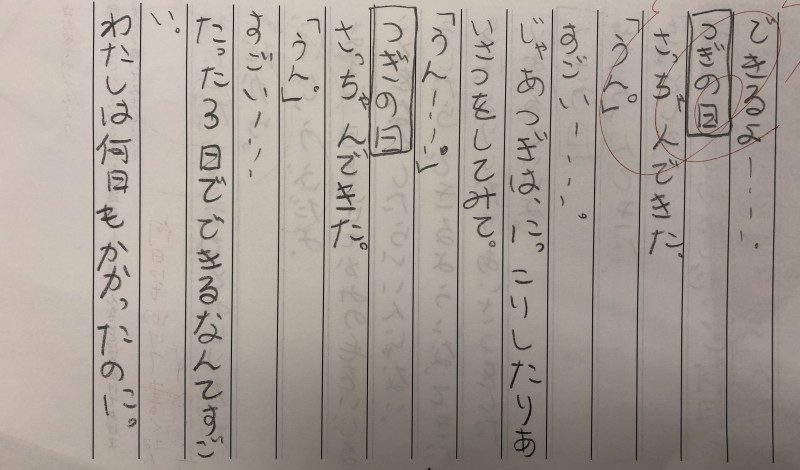 できるよー……。
つぎの日
さっちゃんできた。
「うん。」
すごいー……。
じゃあつぎは、にっこりしたりあ
いさつをしてみて。
「うんー……。」
つぎの日
さっちゃんできた。
「うん」。
すごいー……
たった3日でできるなんてすご
い。
わたしは何日もかかったのに。